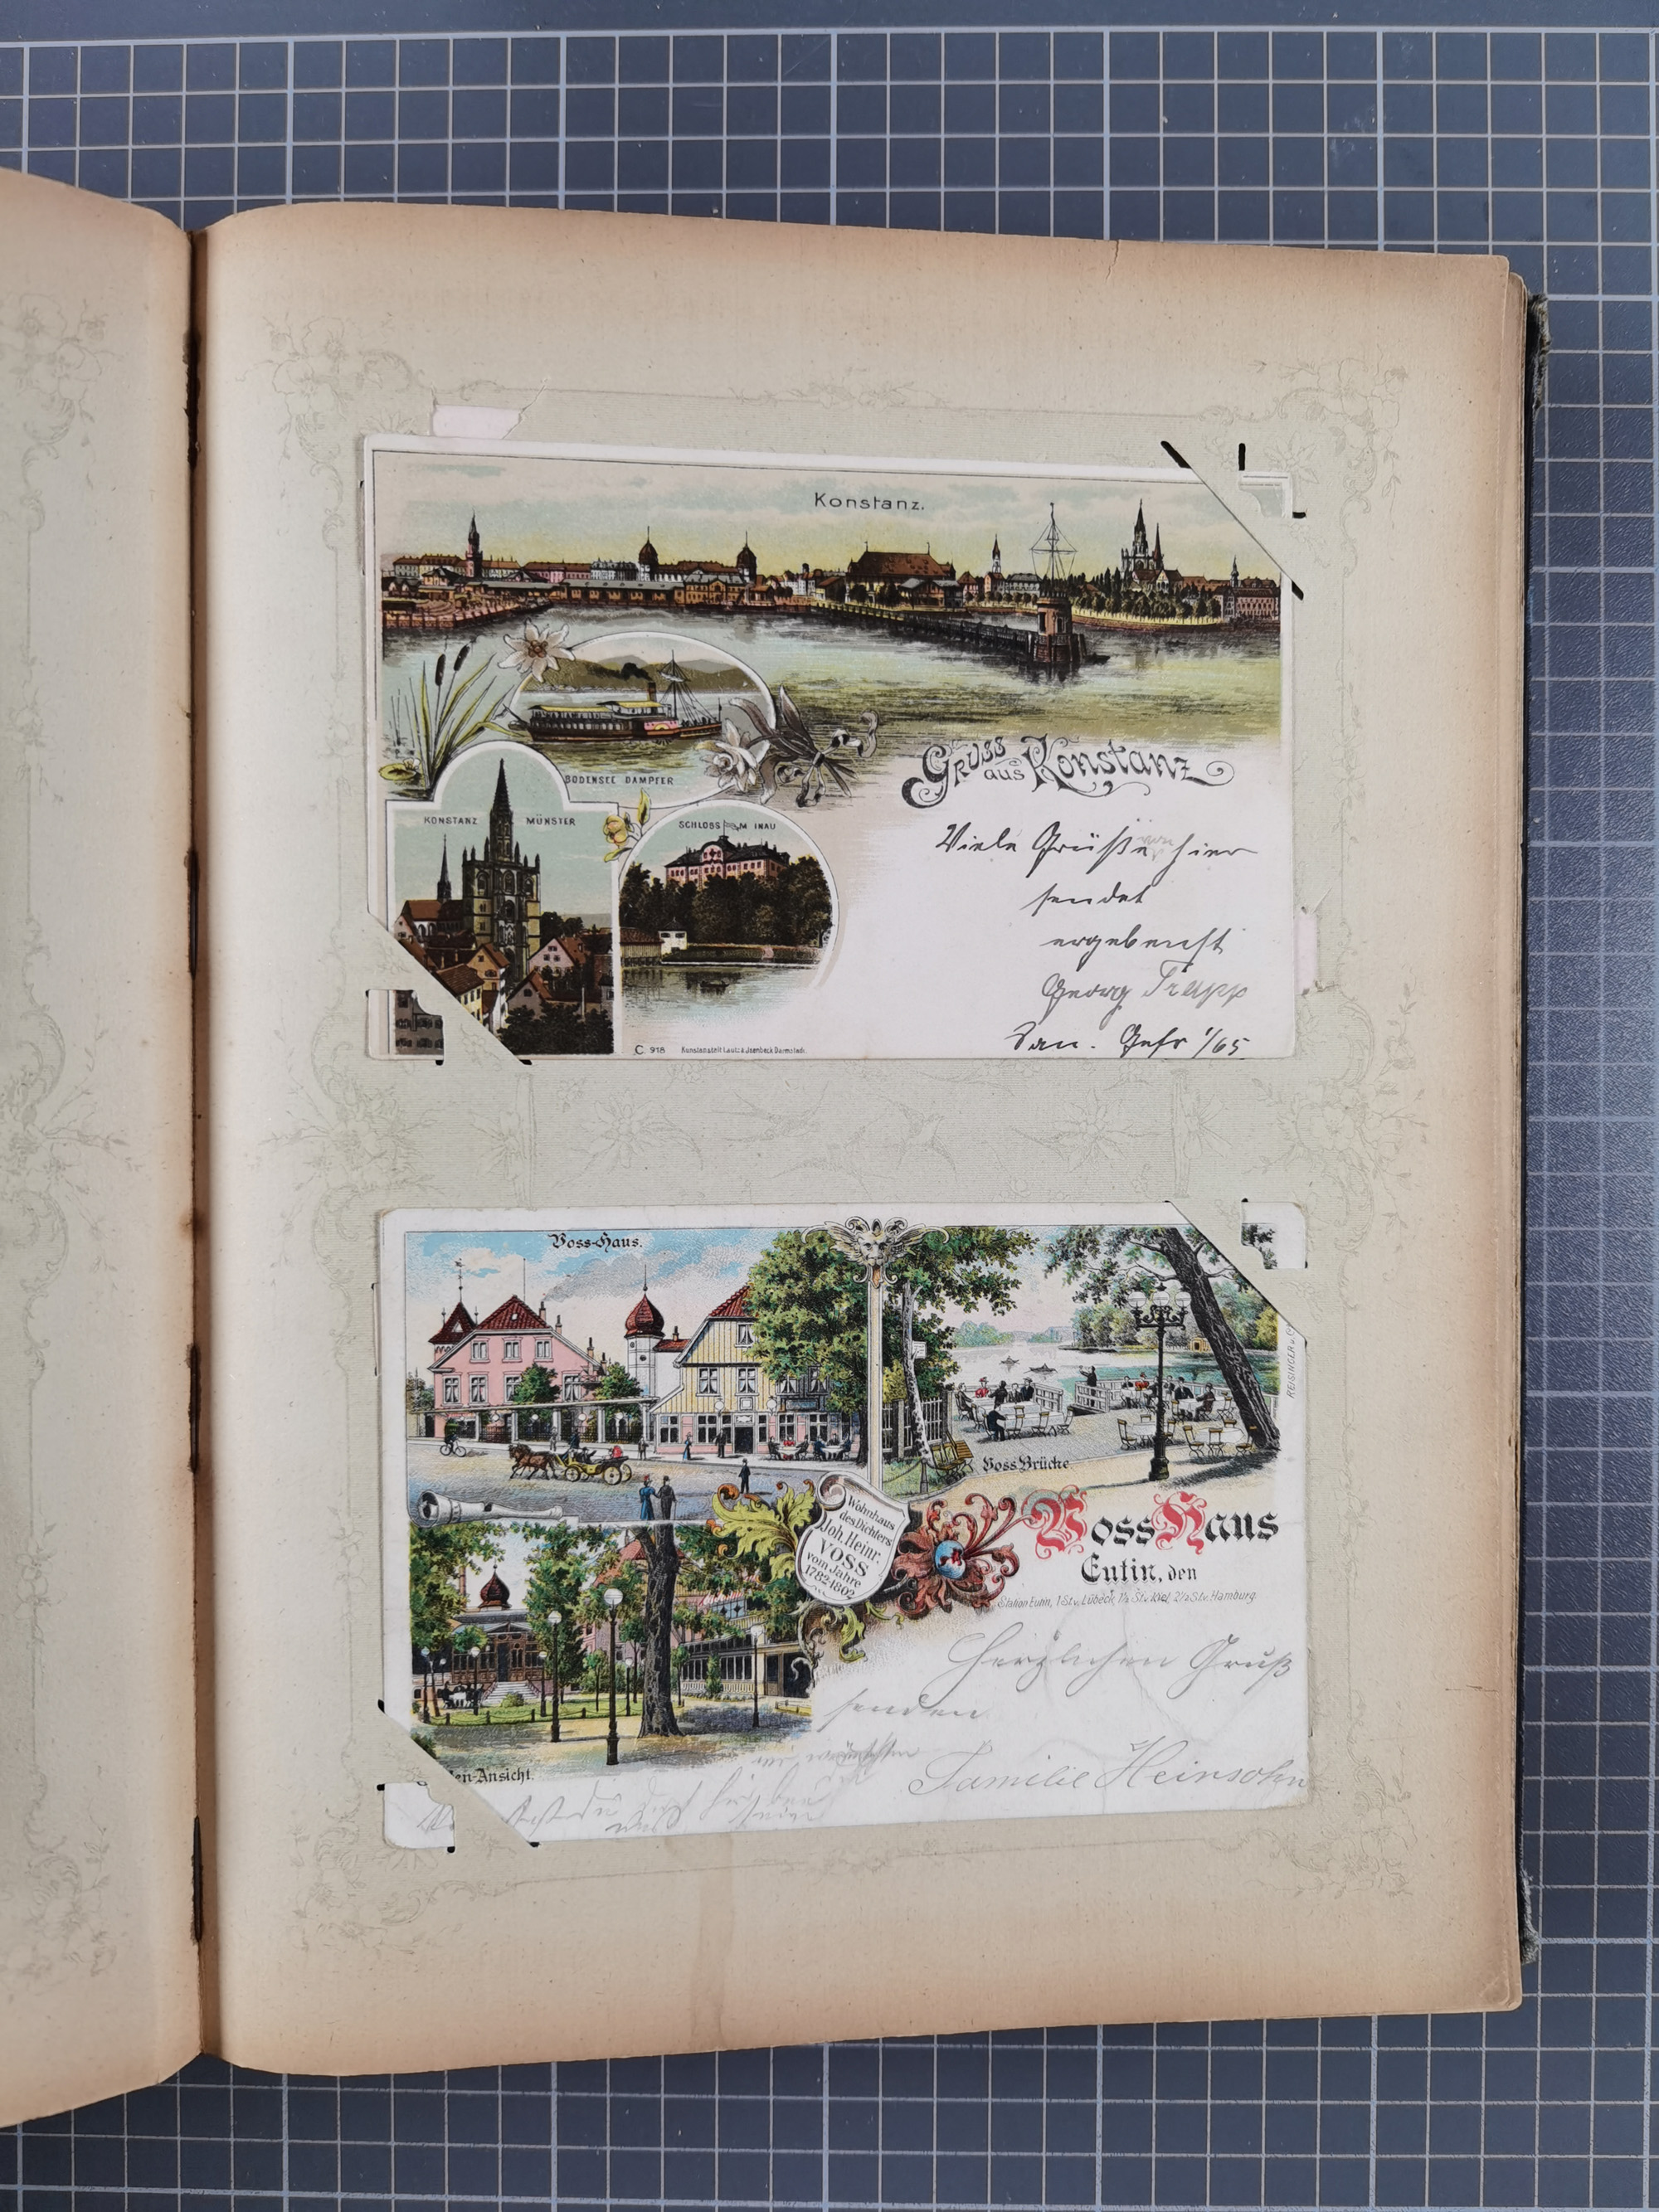 Konstanz.
BODENSEE DAMPFER
Gruss
aus Konstanz
KONSTANZ MÜNSTER
SCHLOSS MAINAU
Viele Grüße von hier
sendet
ergebenst
Georg Trapp
San. Gefr 1/65
C 918 Kunstanstalt Lautz & Jsenbeck Darmstadt.
Voss-Haus.
REISINGER v. C
Voss Brücke
Wohnhaus
des Dichters
Joh. Heinr.
VOSS
vom Jahre
1782-1802
Voss Haus
Eutin, den
Station Eutin, 1 St. v. Lübeck, 1½ St. v. Kiel, 2½ St. v. Hamburg.
Herzlichen Gruß
senden
Familie Heinsohn
en-Ansicht.